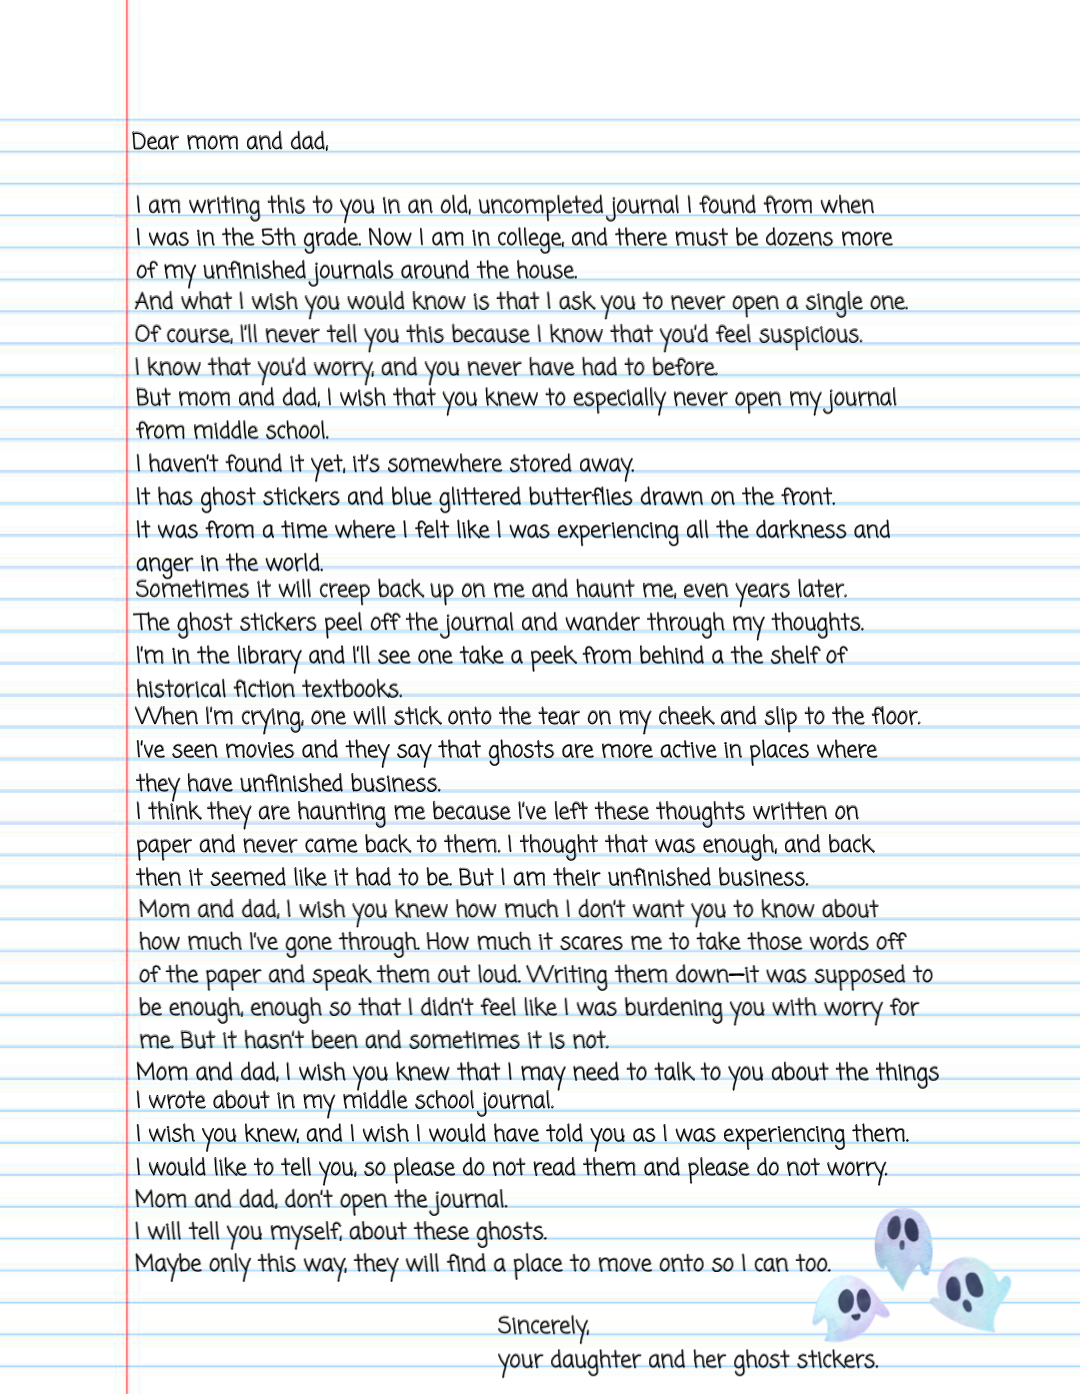 Dear mom and dad,
I am writing this to you in an old, uncompleted journal I found from when
I was in the 5th grade. Now I am in college, and there must be dozens more
of my unfinished journals around the house.
And what I wish you would know is that I ask you to never open a single one.
Of course, I'll never tell you this because I know that you'd feel suspicious.
I know that you'd worry, and you never have had to before.
But mom and dad, I wish that you knew to especially never open my journal
from middle school.
I haven't found it yet, it's somewhere stored away.
It has ghost stickers and blue glittered butterflies drawn on the front.
It was from a time where I felt like I was experiencing all the darkness and
anger in the world.
Sometimes it will creep back up on me and haunt me, even years later.
The ghost stickers peel off the journal and wander through my thoughts.
I'm in the library and I'll see one take a peek from behind a the shelf of
historical fiction textbooks.
When I'm crying, one will stick onto the tear on my cheek and slip to the floor.
I've seen movies and they say that ghosts are more active in places where
they have unfinished business.
I think they are haunting me because I've left these thoughts written on
paper and never came back to them. I thought that was enough, and back
then it seemed like it had to be. But I am their unfinished business.
Mom and dad, I wish you knew how much I don't want you to know about
how much I've gone through. How much it scares me to take those words off
of the paper and speak them out loud. Writing them down—it was supposed to
be enough, enough so that I didn't feel like I was burdening you with worry for
me. But it hasn't been and sometimes it is not.
Mom and dad, I wish you knew that I may need to talk to you about the things
I wrote about in my middle school journal.
I wish you knew, and I wish I would have told you as I was experiencing them.
I would like to tell you, so please do not read them and please do not worry.
Mom and dad, don't open the journal.
I will tell you myself, about these ghosts.
Maybe only this way, they will find a place to move onto so I can too.
Sincerely,
your daughter and her ghost stickers.